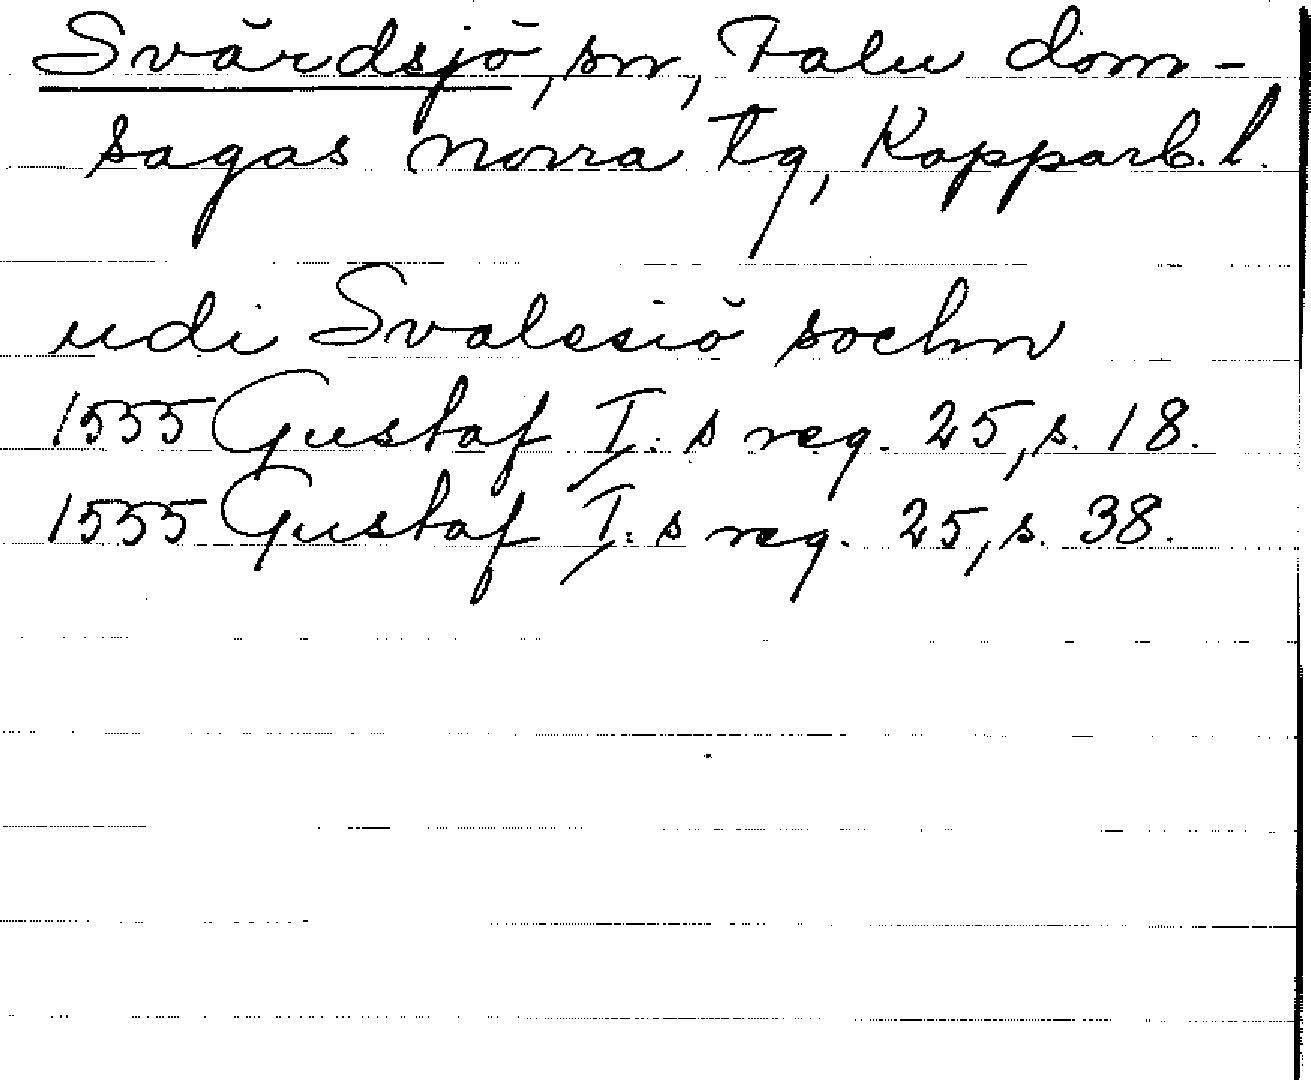 Svärdsjö, sn, Falu dom-
sagas norra tg, Kopparb. l.
udi Svalesiö sochn
1555 Gustaf I: s reg. 25, s. 18.
1555 Gustaf I: s reg. 25, s. 38.